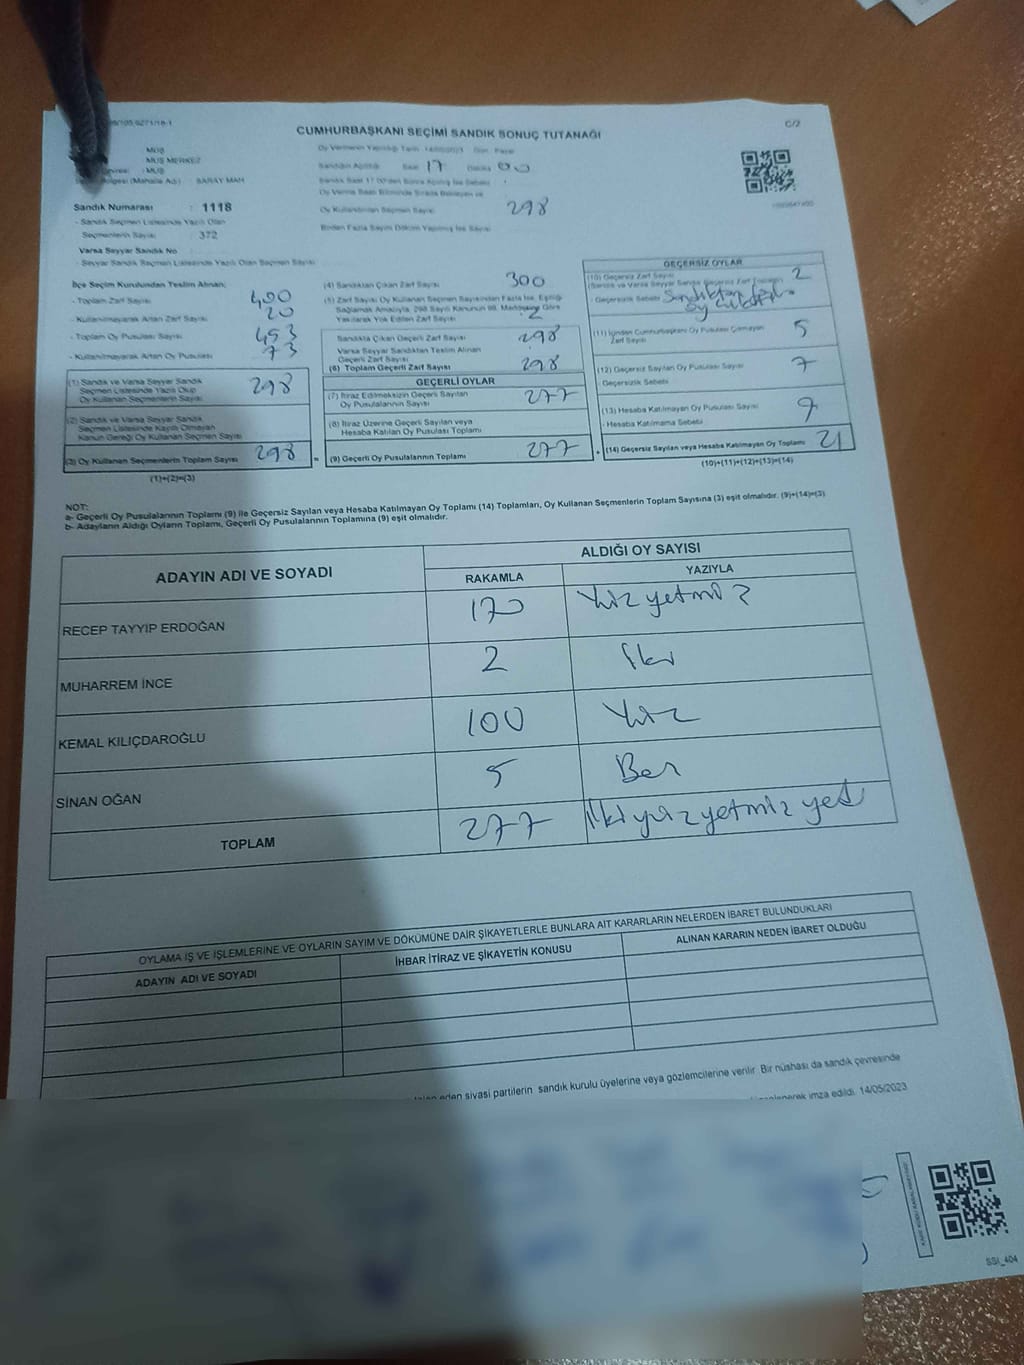 C/2
CUMHURBAŞKANI SEÇİMİ SANDIK SONUÇ TUTANAĞI
MUŞ
MUŞ MERKEZ
MUŞ
(Mahalle Adı) : SARAY MAH
Oy Vermenin Yapıldığı Tarih 14/05/2023 Gün Pazar
Sandığın Açıldığı Saat 17 Dakika 00
Oy Kullandırılan Seçmen Sayısı 298
Birden Fazla Sayım Döküm Yapılmış İse Sayısı
Sandık Numarası : 1118
- Sandık Seçmen Listesinde Yazılı Olan
Seçmenlerin Sayısı : 372
Varsa Seyyar Sandık No
- Seyyar Sandık Seçmen Listesinde Yazılı Olan Seçmen Sayısı
İlçe Seçim Kurulundan Teslim Alınan;
- Toplam Zarf Sayısı 400
- Kullanılmayarak Artan Zarf Sayısı 20
- Toplam Oy Pusulası Sayısı 453
- Kullanılmayarak Artan Oy Pusulası 73
(1) Sandık ve Varsa Seyyar Sandık
Seçmen Listesinde Yazılı Olup
Oy Kullanan Seçmenlerin Sayısı 298
(2) Sandık ve Varsa Seyyar Sandık
Seçmen Listesinde Kayıtlı Olmayan
Kanun Gereği Oy Kullanan Seçmen Sayısı
(3) Oy Kullanan Seçmenlerin Toplam Sayısı 298
(1)+(2)=(3)
(4) Sandıktan Çıkan Zarf Sayısı 300
(5) Zarf Sayısı Oy Kullanan Seçmen Sayısından Fazla İse, Eşitliği
Sağlamak Amacıyla, 298 Sayılı Kanunun 98. Maddesine Göre
Yakılarak Yok Edilen Zarf Sayısı 2
Sandıkta Çıkan Geçerli Zarf Sayısı 298
Varsa Seyyar Sandıktan Teslim Alınan
Geçerli Zarf Sayısı
(6) Toplam Geçerli Zarf Sayısı 298
GEÇERLİ OYLAR
(7) İtiraz Edilmeksizin Geçerli Sayılan
Oy Pusulalarının Sayısı 277
(8) İtiraz Üzerine Geçerli Sayılan veya
Hesaba Katılan Oy Pusulası Toplamı
= (9) Geçerli Oy Pusulalarının Toplamı 277
GEÇERSİZ OYLAR
(10) Geçersiz Zarf Sayısı 2
(Sandık ve Varsa Seyyar Sandık Geçersiz Zarf Toplamı)
- Geçersizlik Sebebi Sandıktan fazla
oy
(11) İçinden Cumhurbaşkanı Oy Pusulası Çıkmayan
Zarf Sayısı 5
(12) Geçersiz Sayılan Oy Pusulası Sayısı 7
- Geçersizlik Sebebi
(13) Hesaba Katılmayan Oy Pusulası Sayısı 9
- Hesaba Katılmama Sebebi
+ (14) Geçersiz Sayılan veya Hesaba Katılmayan Oy Toplamı 21
(10)+(11)+(12)+(13)=(14)
NOT:
a- Geçerli Oy Pusulalarının Toplamı (9) ile Geçersiz Sayılan veya Hesaba Katılmayan Oy Toplamı (14) Toplamları, Oy Kullanan Seçmenlerin Toplam Sayısına (3) eşit olmalıdır. (9)+(14)=(3)
b- Adayların Aldığı Oyların Toplamı, Geçerli Oy Pusulalarının Toplamına (9) eşit olmalıdır.
ADAYIN ADI VE SOYADI
ALDIĞI OY SAYISI
RAKAMLA YAZIYLA
RECEP TAYYIP ERDOĞAN 170 Yüz yetmiş
MUHARREM İNCE 2 İki
KEMAL KILIÇDAROĞLU 100 Yüz
SİNAN OĞAN 5 Beş
TOPLAM 277 İkiyüzyetmiş yedi
OYLAMA İŞ VE İŞLEMLERİNE VE OYLARIN SAYIM VE DÖKÜMÜNE DAİR ŞİKAYETLERLE BUNLARA AİT KARARLARIN NELERDEN İBARET BULUNDUKLARI
ADAYIN ADI VE SOYADI İHBAR İTİRAZ VE ŞİKAYETİN KONUSU ALINAN KARARIN NEDEN İBARET OLDUĞU
eden siyasi partilerin sandık kurulu üyelerine veya gözlemcilerine verilir. Bir nüshası da sandık çevresinde
imza edildi. 14/05/2023
SSI_404